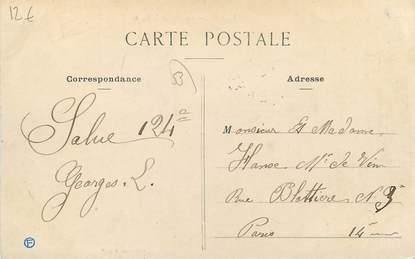 12 €
CARTE POSTALE
Correspondance
53
Adresse
Salue 124
Georges. L.
Monsieur Et Madame
Hanse Md de Vin
Rue N. 3
Paris 14